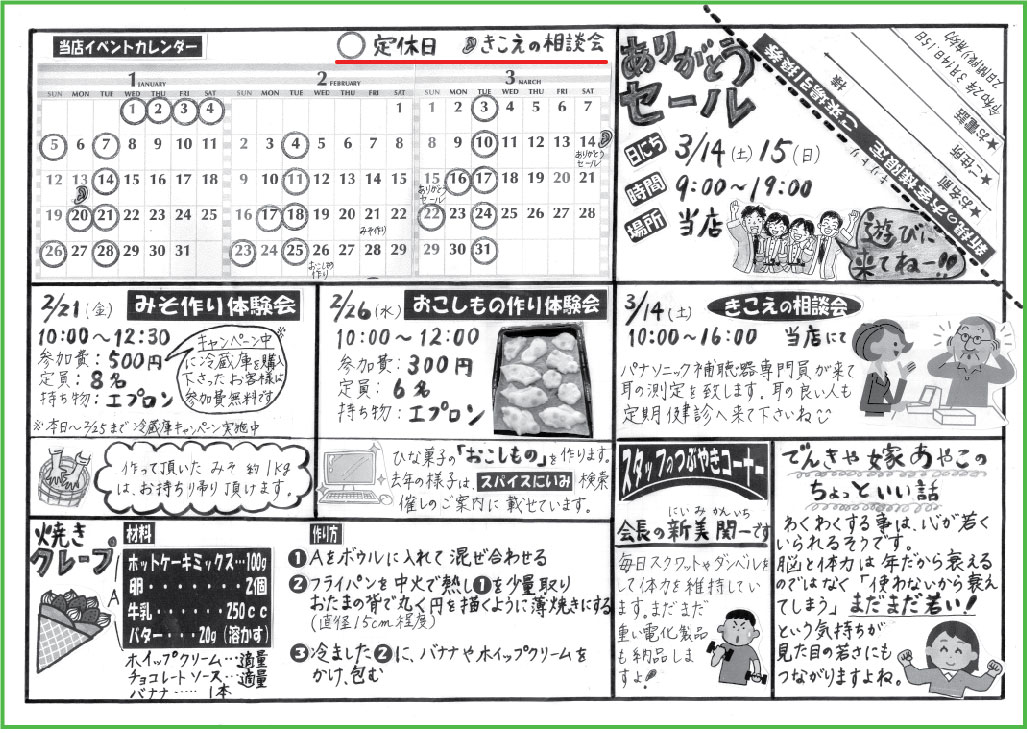 当店イベントカレンダー
定休日 きこえの相談会
1 JANUARY
SUN MON TUE WED THU FRI SAT
1 2 3 4
5 6 7 8 9 10 11
12 13 14 15 16 17 18
19 20 21 22 23 24 25
26 27 28 29 30 31
2 FEBRUARY
SUN MON TUE WED THU FRI SAT
1
2 3 4 5 6 7 8
9 10 11 12 13 14 15
16 17 18 19 20 21 22
みそ作り
23 24 25 26 27 28 29
おこしもの作り
3 MARCH
SUN MON TUE WED THU FRI SAT
1 2 3 4 5 6 7
8 9 10 11 12 13 14
ありがとうセール!
15 16 17 18 19 20 21
ありがとうセール!
22 23 24 25 26 27 28
29 30 31
ありがとう
セール
日にち 3/14(土) 15(日)
時間 9:00~19:00
場所 当店
遊びに
来てねー!!
新規のお客様限定 ご来場引換券
キリトリ
★お名前 様
★ご住所
★お電話
令和2年3月14日15日
2日間限り有効
2/21(金) みそ作り体験会
10:00~12:30
参加費:500円
定員:8名
持ち物:エプロン
キャンペーン中※
に冷蔵庫を購入
下さったお客様は
参加費無料です
※本日~2/25まで冷蔵庫キャンペーン実施中
作って頂いたみそ約1kg
は、お持ち帰り頂けます。
2/26(水) おこしもの作り体験会
10:00~12:00
参加費:300円
定員:6名
持ち物:エプロン
ひな菓子の「おこしもの」を作ります。
去年の様子は、スパイスにいみ検索
催しのご案内に載せています。
3/14(土) きこえの相談会
10:00~16:00 当店にて
パナソニック補聴器専門員が来て
耳の測定を致します。耳の良い人も
定期健診へ来て下さいね
焼き
クレープ
材料
A
ホットケーキミックス…100g
卵・・・・・・・2個
牛乳・・・・・250cc
バター・・・20g(溶かす)
ホイップクリーム…適量
チョコレートソース…適量
バナナ……1本
作り方
❶Aをボウルに入れて混ぜ合わせる
❷フライパンを中火で熱し❶を少量取り
おたまの背で丸く円を描くように薄焼きにする
(直径15cm程度)
❸冷ました❷に、バナナやホイップクリームを
かけ、包む
スタッフのつぶやきコーナー
にいみ かんいち
会長の新美関一です
毎日スクワットやダンベルを
して体力を維持してい
ます。まだまだ
重い電化製品
も納品しま
すよ!
でんきや嫁あやこの
ちょっといい話
わくわくする事は、心が若く
いられるそうです。
脳と体力は年だから衰える
のではなく「使わないから衰え
てしまう」まだまだ若い!
という気持ちが
見た目の若さにも
つながりますよね。